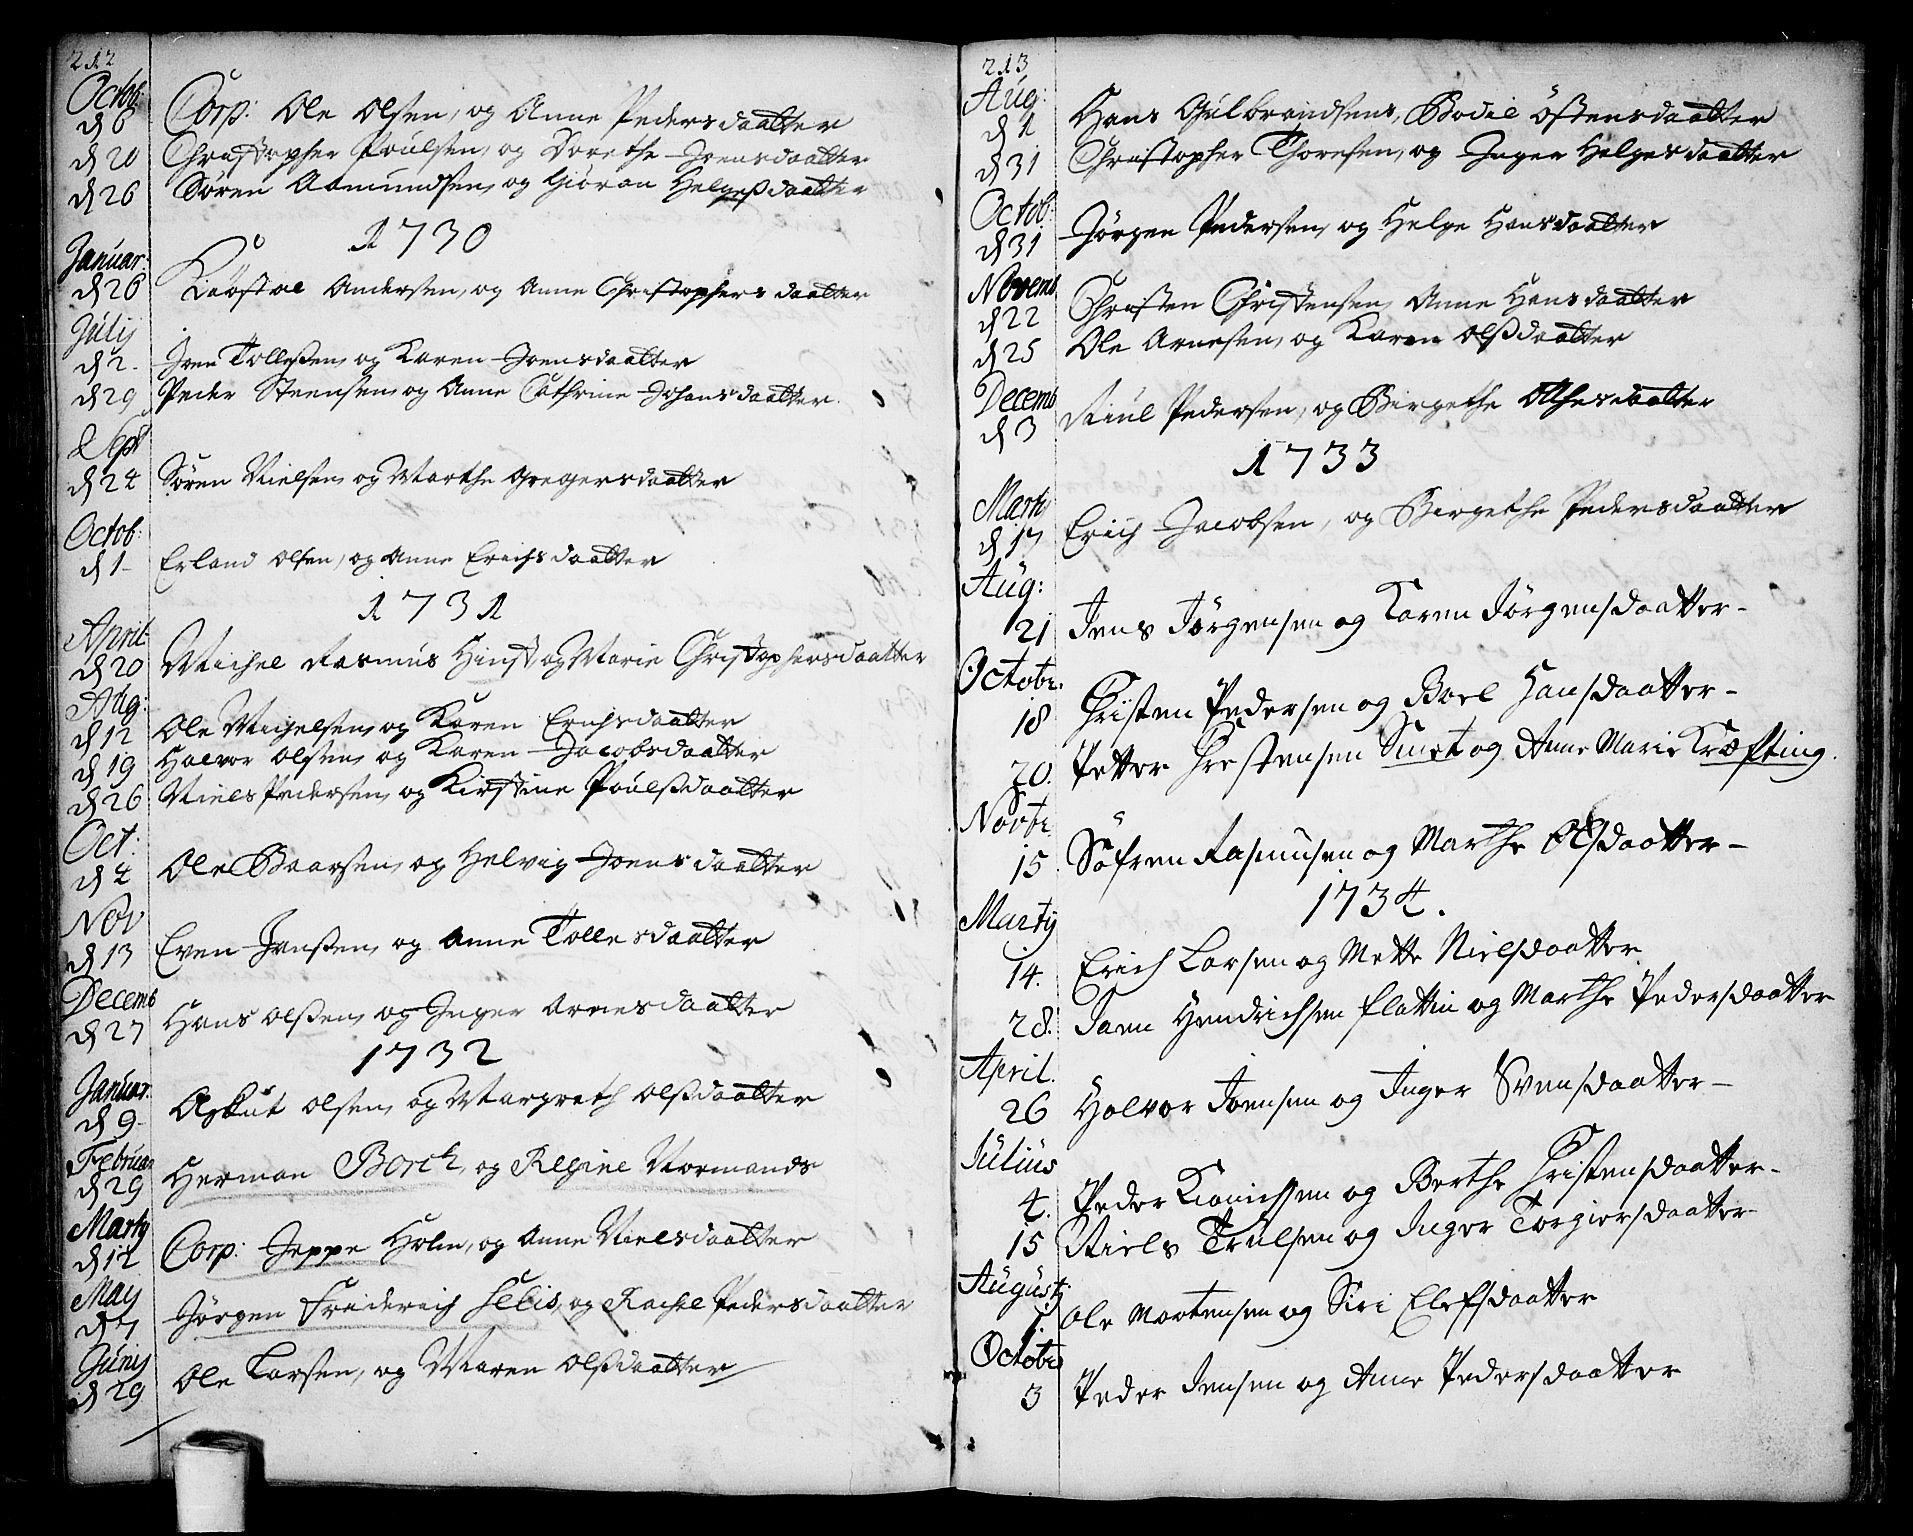 212
Octob:
d 6 Corp: Ole Olsen, og Anne Pedersdaatter
d 20 Christopher Poulsen, og Dorethe Joensdaatter
d 26 Sören Aamundsen, og Giöran Helgesdaatter
1730
Januar:
d 26 Andersen, og Anne Christophersdaatter
Julij
d 2. Joen Tollessen, og Karen Joensdaatter
d 29 Peder Steensen, og Anne Cathrine Johansdaatter.
Sept
d 24 Sören Nielsen, og Marthe Gregersdaatter
Octob:
d 1 Erland Olsen, og Anne Erichsdaatter
1731
April
d 20 Michel Rasmus Hinst, og Marie Christophersdaatter
Aug:
d 12 Ole Michelsen, og Karen Erichsdaatter
d 19 Halvor Olsen, og Karen Jacobsdaatter
d 26 Niels Pedersen, og Kirstine Poulsdaatter
Oct:
d 4 Ole Baarsen, og Helvig Joensdaatter
Nov
d 13 Even Jenssen, og Anne Tollesdaatter
Decemb
d 27 Hans Olssen, og Inger Arnesdaatter
1732
Januar.
d 9 Askut Olsen, og Margreth Olssdaatter
Februar
d 29 Herman Borck, og Regine Normands
Martij
d 12 Corp: Jeppe Holm, og Anne Nielsdaatter
Maij
d 7 Jörgen Friderich Selis, og Rachel Pedersdaatter
Junij
d 29 Ole Larsen, og Maren Olssdaatter
213
Aug:
d 1 Hans Gulbrandsens, Bodil Östensdaatter
d 31 Christopher Thoresen, og Inger Helgesdaatter
Octob:
d 31 Jörgen Pedersen, og Helge Hansdaatter
Novemb
d 22 Christen Christensen, Anne Hansdaatter
d 25 Ole Arnesen, og Karen Olssdaatter
Decemb
d 3 Riul Pedersen, og Birgethe Olthesdaatter
1733
Martij
d 17 Erich Jacobsen, og Birgethe Pedersdaatter
Aug:
21 Jens Jörgensen og Karen Jörgensdaatter-
Octobr.
18 Christen Pedersen og Boel Hansdaatter-
20. Petter Christensen Smet og Anne Marie Kræfting.
Novbr
15 Söfren Rasmusen og Marthe Olsdaatter-
1734.
Martij
14. Erich Larsen og Mette Nielsdaatter
28. Joen Hendrichsen Flattin og Marthe Pedersdaatter
April.
26 Halvor Joensen og Inger Svensdaatter-
Julius
4. Peder og Berthe Christensdaatter-
15 Niels Trulsen og Inger Torgiersdaatter
Augustj
1. Ole Mortensen og Siri Elefsdaatter
Octobr
3 Peder Jensen og Anne Pedersdaatter